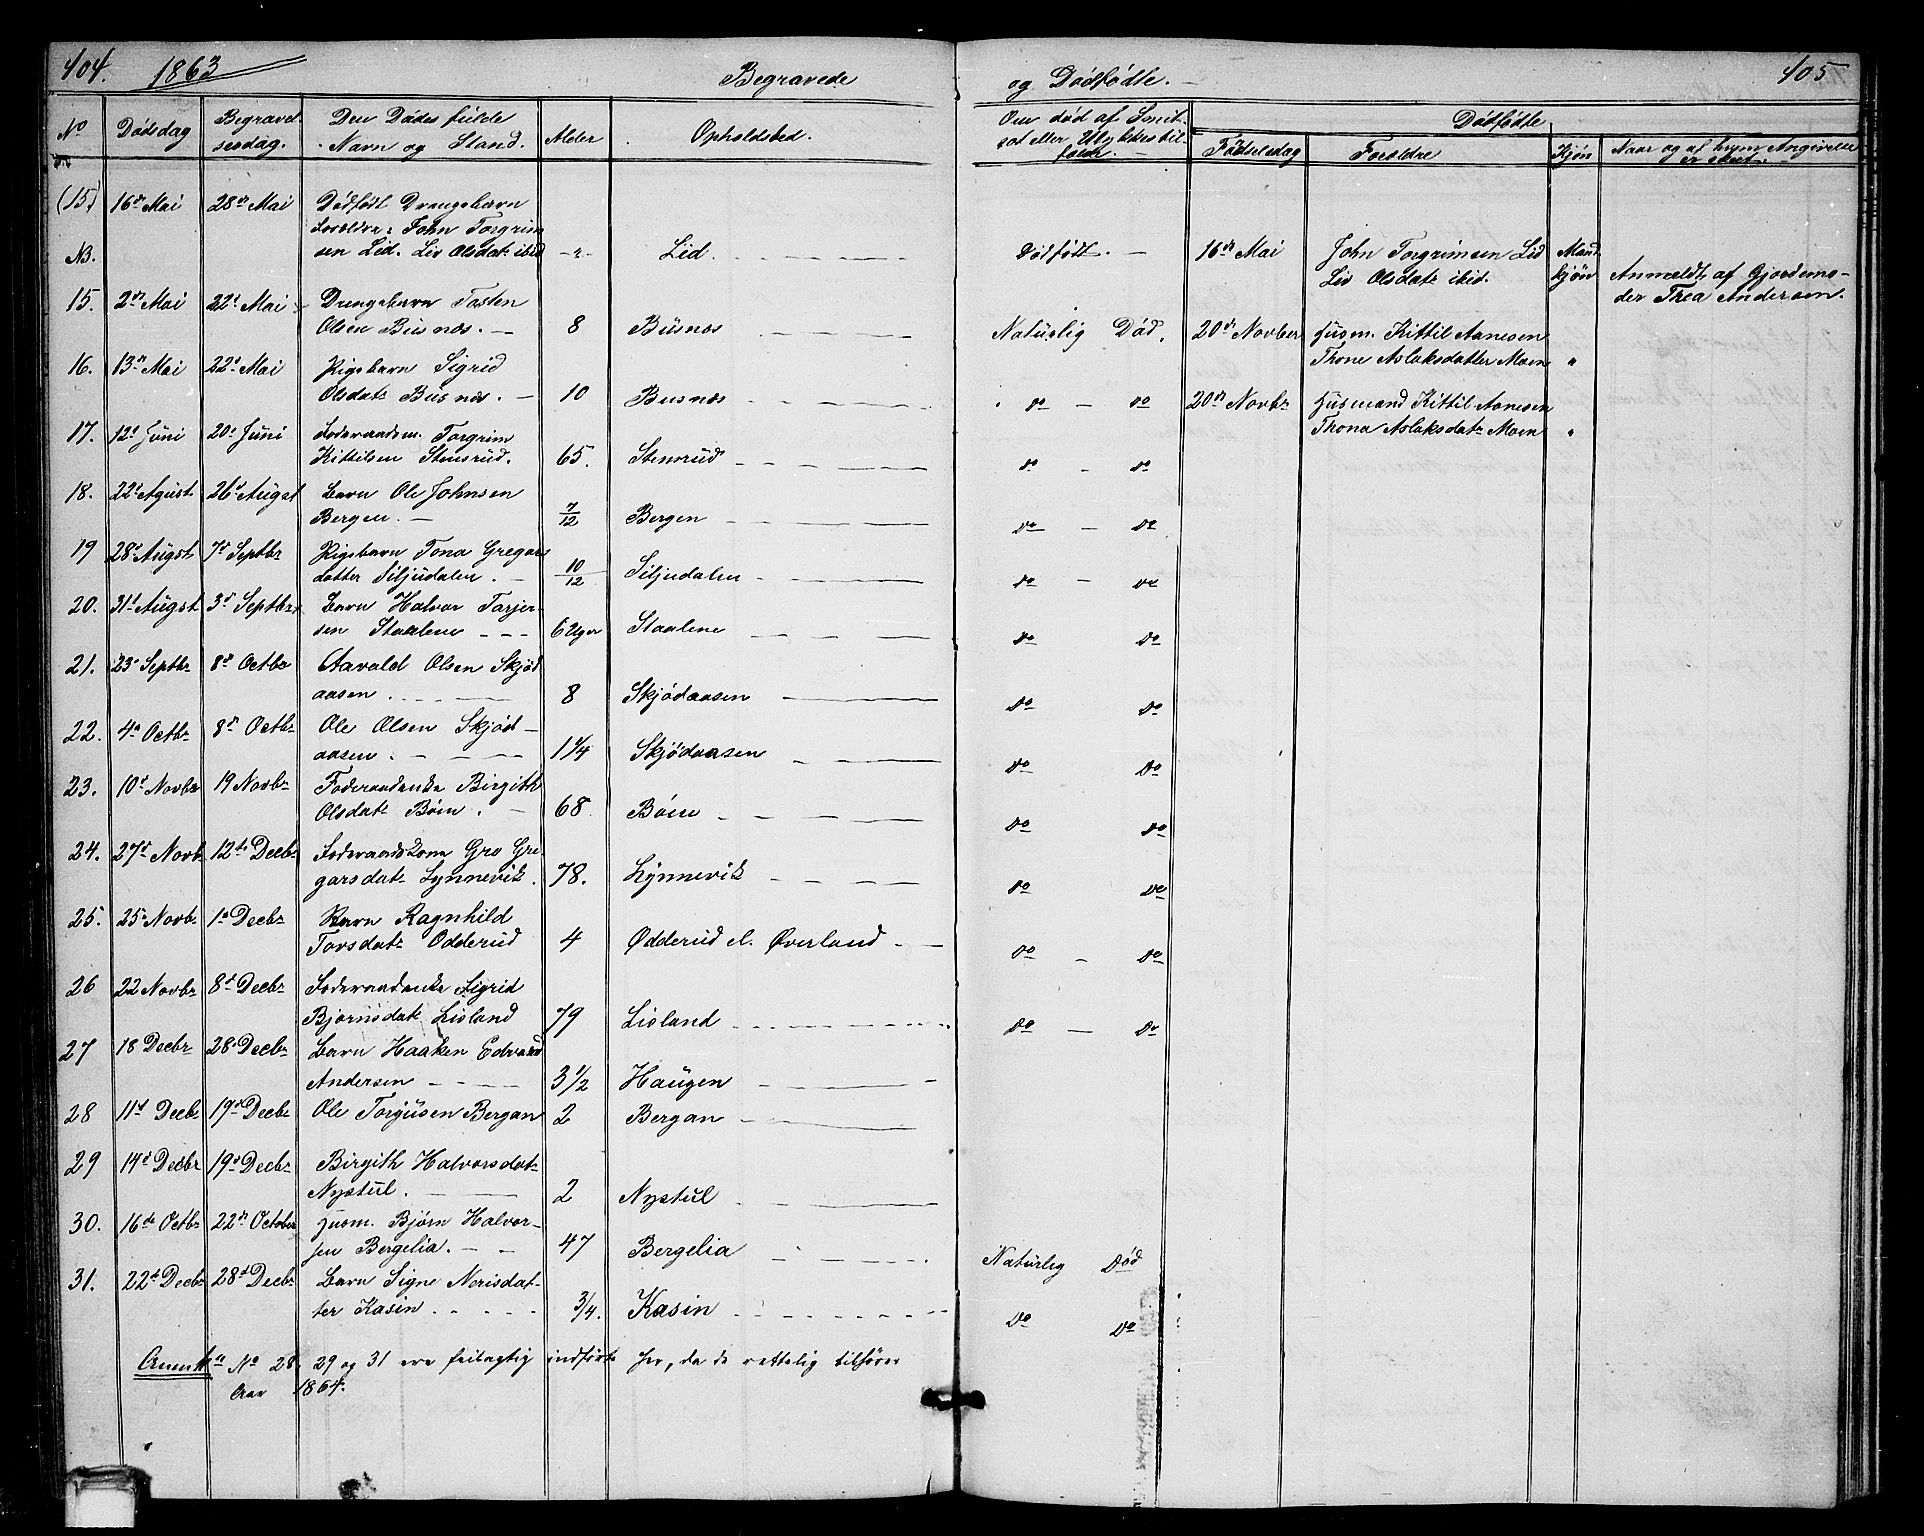 404. 1863 Begravede og Dødfødte. 405
No Dødsdag Begravelsesdag. Den Dødes fulde Navn og Stand. Alder Opholdsted. Om død af Smitsot eller Ulykkestilfælde. Dødfødte
Fødselsdag Forældre Kjøn Naar og af hvem Angivelse er skeet.
(15) 16de Mai 28de Mai Dødfødt Drengebarn
Forældre: John Torgrim
NB. sen Lid. Liv Olsdatr ibid - " - Lid. Dødfødt. 16de Mai John Torgrimsen Lid Mand
Liv Olsdatr ibid. kjøn Anmeldt af Gjordemo-
der Trea Andersen.
15. 2den Mai 22d Mai Drengebarn Tosten
Olsen Busnæs. 8 Busnæs Naturlig Død. 20de Novber Husm. Kittil Aanesen
Thone Aslaksdatter Moen "
16. 13de Mai 22d Mai Pigebarn Sigrid
Olsdatr Busnæs. 10 Busnæs do - do 20de Novbr Husmand Kittil Aanesen
Thona Aslaksdatr Moen "
17. 12d Juni 20d Juni Foderaadsm. Torgrim
Kittilsen Stensrud. 65. Stensrud do - do
18. 22d Agust 26d Augst Barn Ole Johnsen
Bergen. 7/12 Bergen do - do
19 28d Augst 7d Septbr Pigebarn Tona Gregars
datter Siljudalen. 10/12 Siljudalen do - do
20. 31d Augst 3d Septbr Barn Halvor Tarjer-
sen Staalene 6 Uger Staalene do do
21. 23d Septbr 8d Octbr Aavald Olsen Skjød
aasen. 8 Skjødaasen do do
22. 4d Octbr 8de Octbr Ole Olsen Skjød-
aasen. 1 1/4 Skjødaasen do do
23. 10d Novbr 19 Novbr Foderaadenke Birgith
Olsdatr Bøin. 68. Bøin do do
24. 27d Novb 12te Decbr Foderaadskone Gro Gre-
garsdatr Lynnevik. 78. Lynnevik do do
25. 25d Novbr 1d Decbr Barn Ragnhild
Torsdatr Odderud 4 Odderud el. Øverland do - do
26 22 Novbr 8d Decbr Foderaadenke Sigrid
Bjørnsdatr Lisland 79 Lisland do - do
27 18 Decbr 28d Decbr Barn Haaken Edvard
Andersen 3 1/2 Haugen
28 11d Decbr 19d Decbr Ole Torgusen Bergan 2 Bergan
29 14d Decbr 19d Decbr Birgith Halvorsdatr
Nystul. 2 Nystul
30. 16de Octbr 22de October Husm. Bjørn Halvor-
sen Bergelia. 47 Bergelia Naturlig Død
31. 22d Decbr 28d Decbr Barn Signe Nerisdat-
ter Kasin 3/4. Kasin do do
Anmk: No 28, 29 og 31 ere feilagtig indførte her, da de rettelig tilhører
Aar 1864.